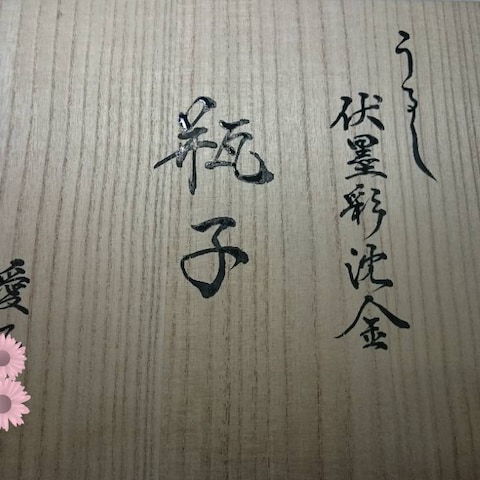 うるし
伏墨彩沈金
瓶子
愛